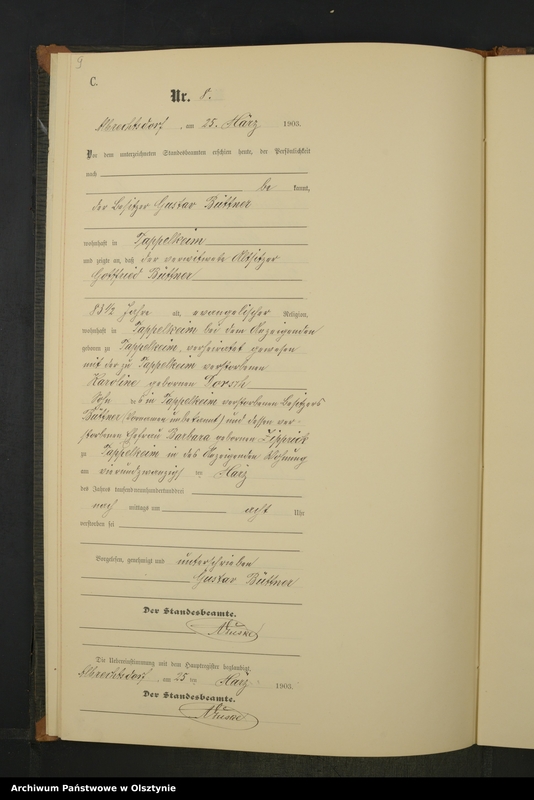 9
C.
Nr. 8.
Albrechtsdorf, am 25. März 1903.
Vor dem unterzeichneten Standesbeamten erschien heute, der Persönlichkeit
nach
be kannt,
der Besitzer Gustav Büttner
wohnhaft in Tappelkeim
und zeigte an, daß der verwitwete Altsitzer
Gottfried Büttner
83 1/2 Jahre alt, evangelischer Religion,
wohnhaft in Tappelkeim bei dem Anzeigenden
geboren zu Tappelkeim, verheiratet gewesen
mit der zu Tappelkeim verstorbenen
Karoline geborenen Dorsch
Sohn des in Tappelkeim verstorbenen Besitzers
Büttner (Vornamen unbekannt) und dessen ver-
storbenen Ehefrau Barbara geborenen
zu Tappelkeim in des Anzeigenden Wohnung
am vierundzwanzigsten März
des Jahres tausendneunhundertunddrei
nach mittags um acht Uhr
verstorben sei
Vorgelesen, genehmigt und unterschrieben
Gustav Büttner
Der Standesbeamte.
Die Uebereinstimmung mit dem Hauptregister beglaubigt.
Albrechtsdorf, am 25 ten März 1903.
Der Standesbeamte.
Archiwum Państwowe w Olsztynie